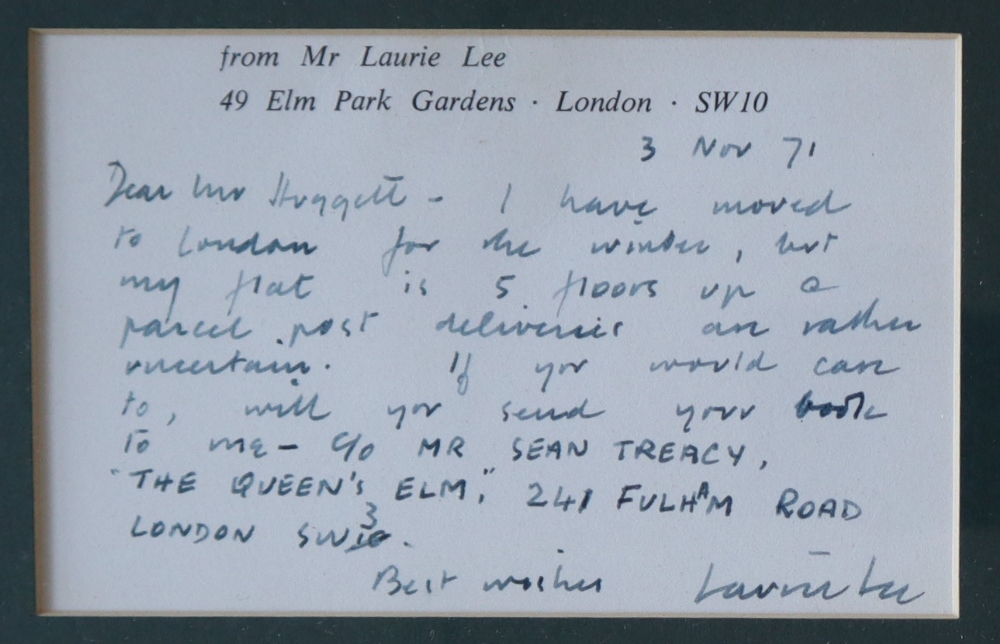 from Mr Laurie Lee
49 Elm Park Gardens · London · SW10
3 Nov 71
Dear Mr Huggett - I have moved
to London for the winter, but
my flat is 5 floors up &
parcel post deliveries are rather
uncertain. If you would care
to, will you send your book
to me - c/o MR SEAN TREACY,
"THE QUEEN'S ELM", 241 FULHAM ROAD
LONDON SW3.
Best wishes Laurie Lee